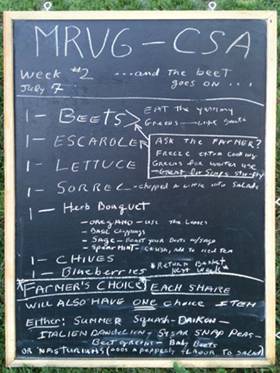 MRVG - CSA
Week #2 ...and the beet
July 7 goes on ...
1 - Beets
Eat the yummy
Greens
1 - Escarole
Ask the Farmer?
Freeze extra cooking
Greens for winter use
- Great for soups
1 - Lettuce
1 - Sorrel - chopped a little into salads
1 - Herb Bouquet
- Oregano - use the leaves
- Basil clippings
- Sage - Roast your beets w/sage
- Spearmint - Crush, add to iced tea
1 - Chives
* Return Basket
next week *
1 - Blueberries
Farmer's Choice Each share
will also have one choice item
Either: Summer Squash - Daikon -
Italien Dandelion - Sugar Snap Peas -
Beet greens - Baby Beets
or Nasturiums (adds a peppery flavour to salad)